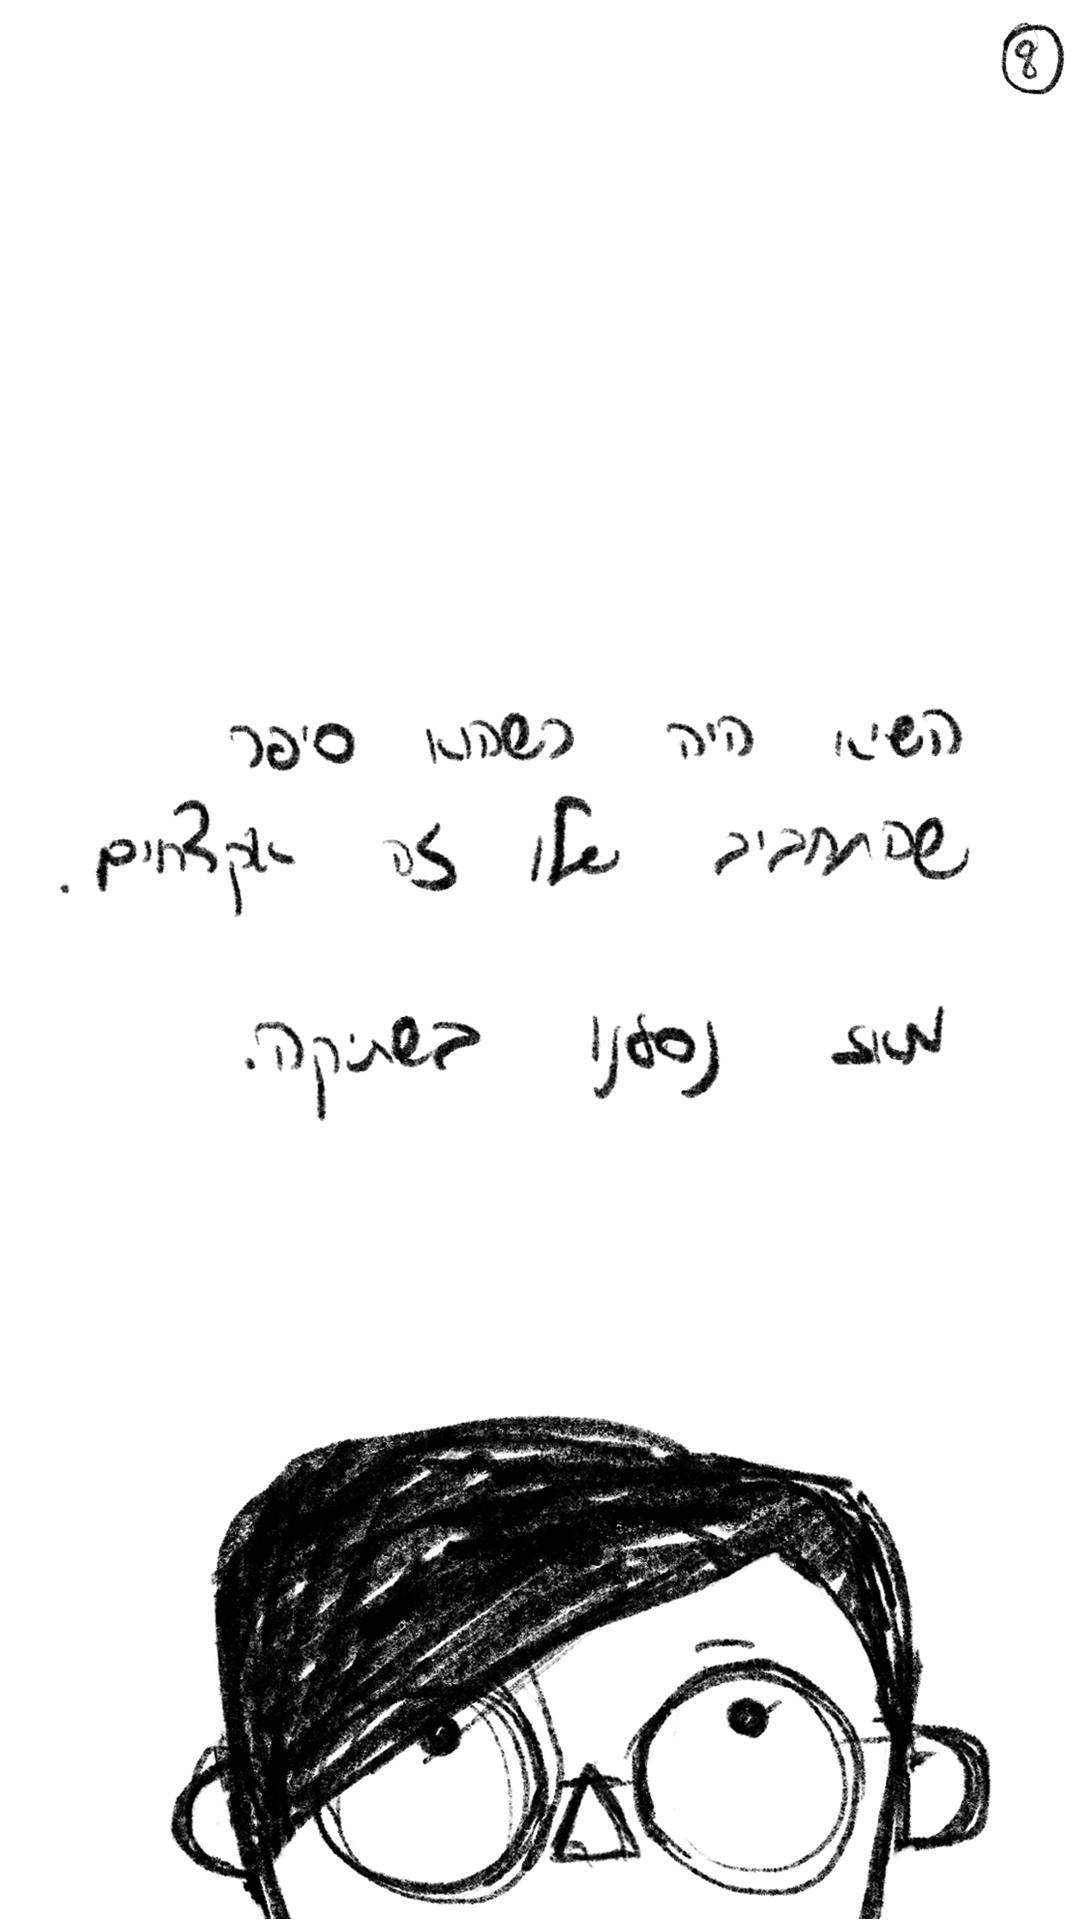 8
השיא היה כשהוא סיפר
שהתחביב שלו זה אקדחים.
מאז נסענו בשתיקה.